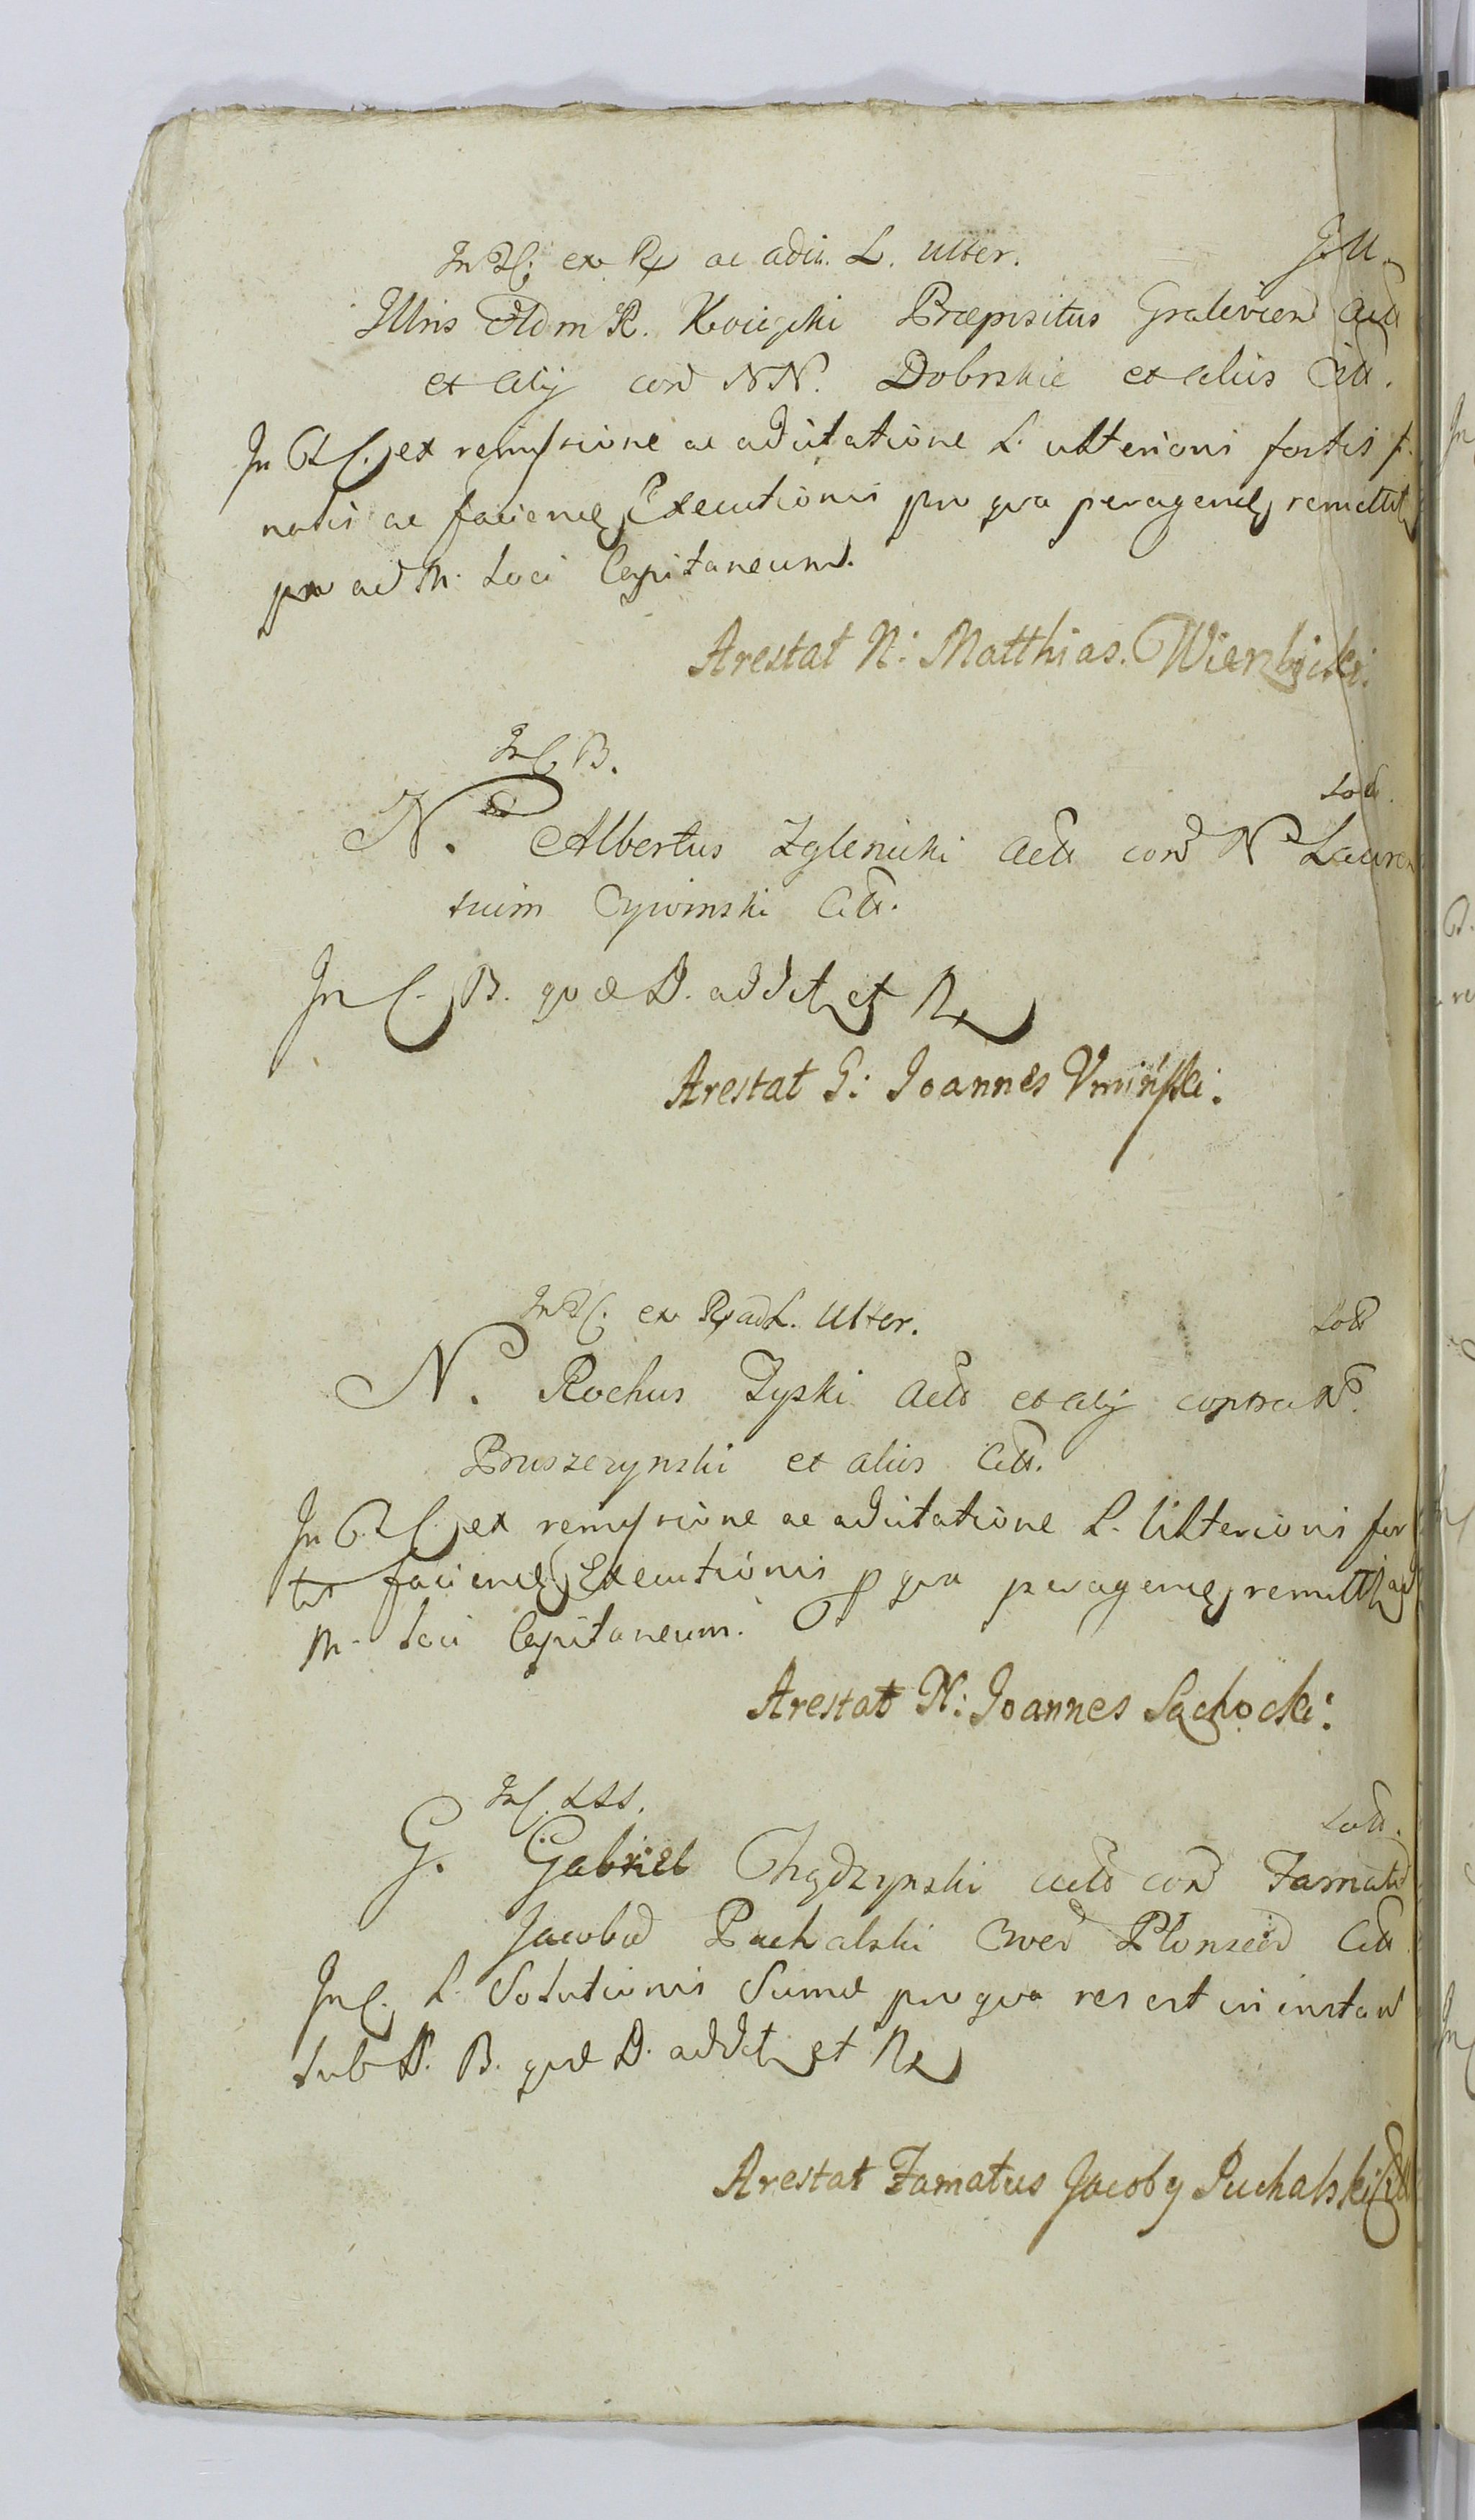 ex Rx ac adiu. L. ulter.
Illris Adm R. Praepositus Act
et alij con NN. Dobrskie et alius Citt.
ex remissione ac adiutatione L. ulterioris fortis
natis ac faciend Executionis pro qva peragend remittit
pro ad M. Loci Capitaneum.
Arestat N: Matthias. Wierzbicki.
In C. B.
N. Albertus Zglenicki Actt con N Lauren
tium Cywinski Citt.
In C. B. qvae D. addit et Rx
Arestat G: Joannes Vmiński:
ex Rx ad L. Ulter.
N. Rochus Zyski Actt et alij contra N.
Pruszczynski et alios Citt.
ex remissione ac adiutatione L. Ulterioris for
tis faciend Executionis p qva peragend remittit ad
M. Loci Capitaneum.
Arestat N: Joannes Sachocki:
In C. LSS.
G. Gabriel Chądzynski actt con Famatu
Jacobu Puchalski Civem Plonscen Citt
In C. L. Solutionis Sumae pro qva res est in instan
sub P. B. qvae D. addit et Rx
Arestat Famatus Jacobg Puchalski